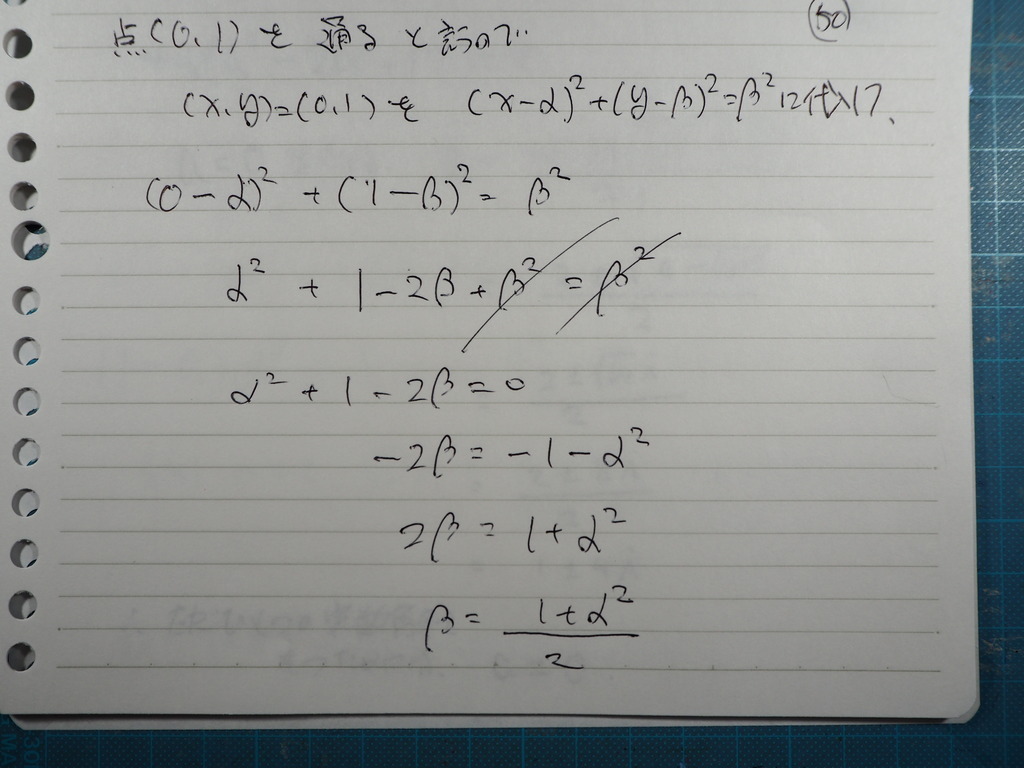 50
点(0,1)を通ると言うので
(x,y)=(0,1)を (x-α)²+(y-β)²=β²に代入して、
(0-α)²+(1-β)²=β²
α²+1-2β+β²=β²
α²+1-2β=0
-2β=-1-α²
2β=1+α²
β=(1+α²)/2